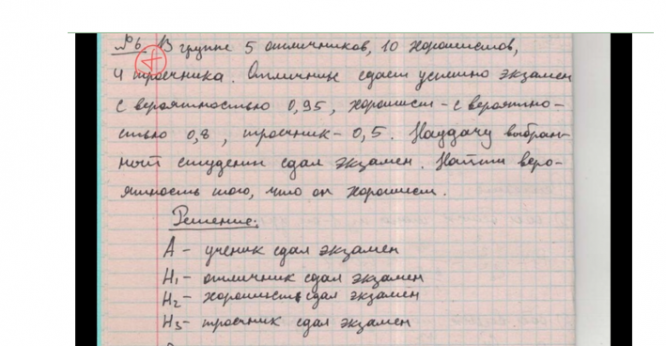 №6 В группе 5 отличников, 10 хорошистов,
4 троечника. Отличник сдает успешно экзамен
с вероятностью 0,95, хорошист - с вероятно-
стью 0,8, троечник - 0,5. Наудачу выбран-
ный студент сдал экзамен. Найти веро-
ятность того, что он хорошист.
Решение:
А - ученик сдал экзамен
H₁ - отличник сдал экзамен
H₂ - хорошист сдал экзамен
H₃ - троечник сдал экзамен